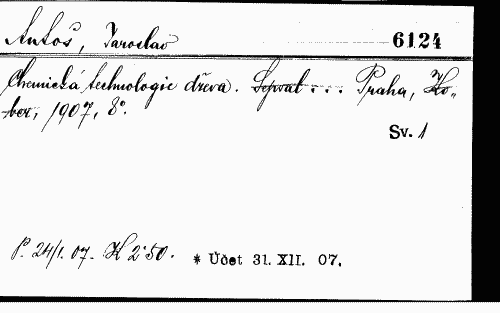 Antoš, Jaroslav 6124
Chemická technologie dřeva. Sepsal ... Praha, Ko-
ber, 1907, 8°.
Sv. 1
P. 24/1. 07. K 2·50. * Účet 31. XII. 07.